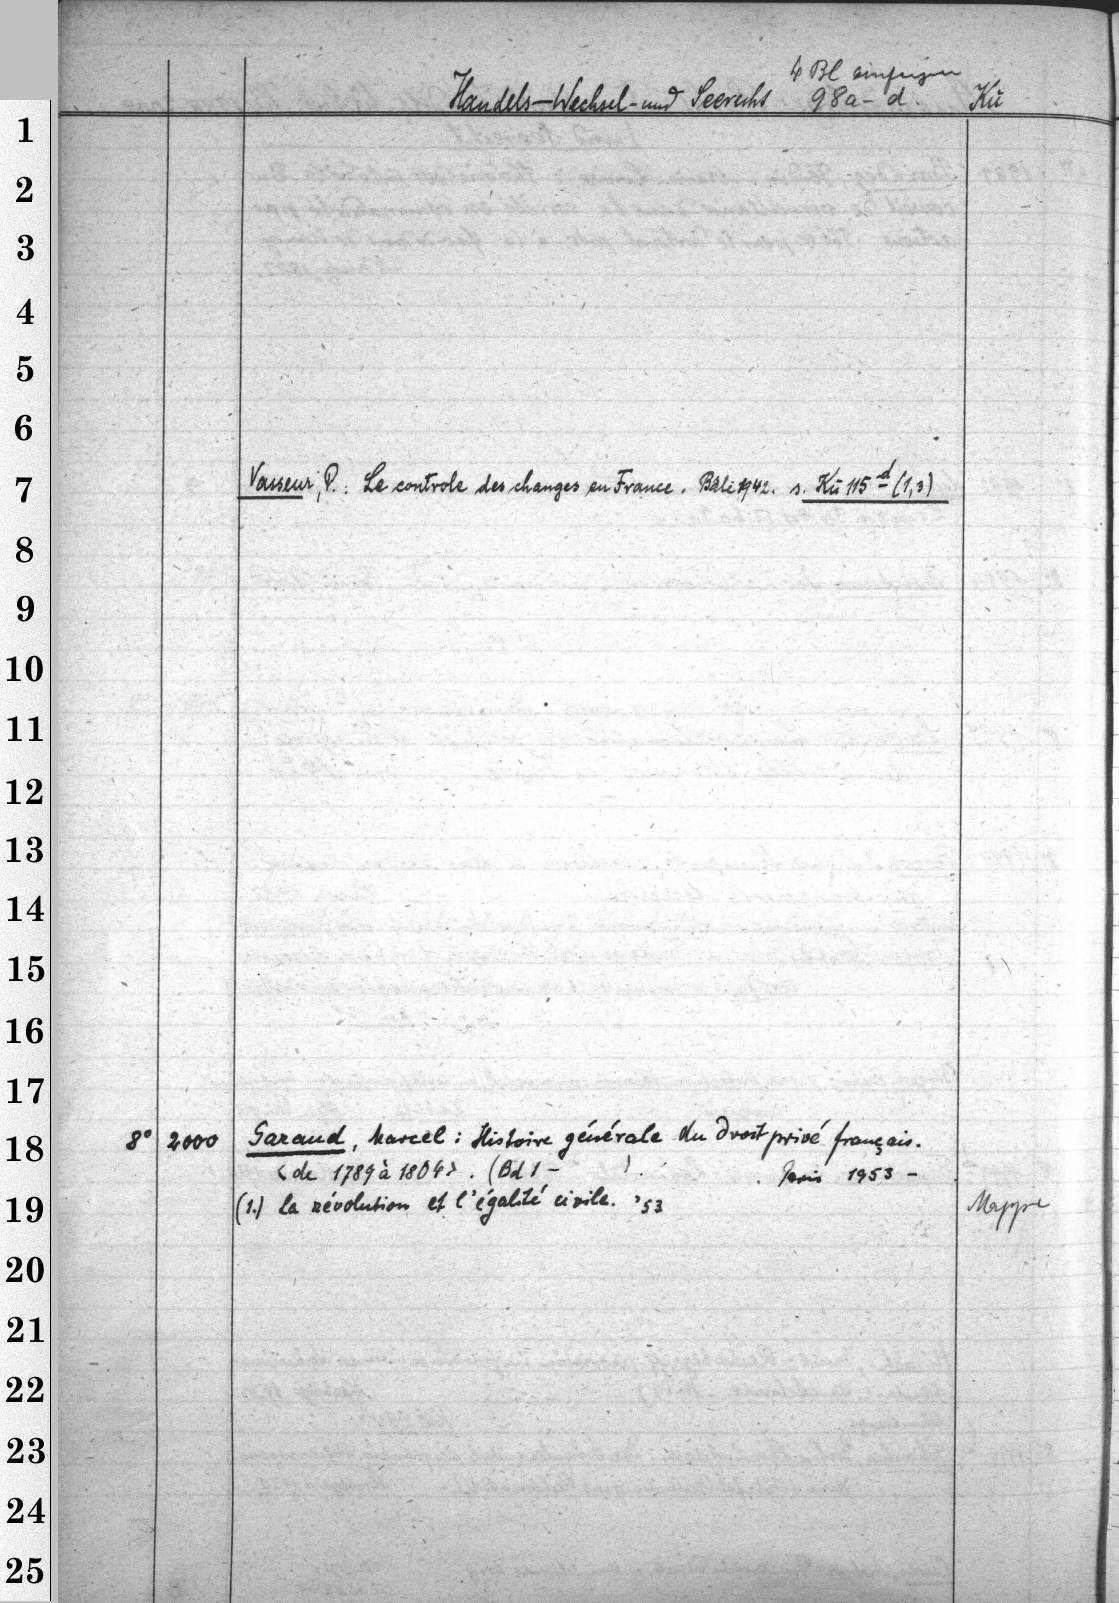 4 Bl einfügen
Handels-Wechsel-und Seerecht 98a-d. Kü
1
2
3
4
5
6
7 Vasseur, P.: Le controle des changes en France. Bâle 1942. s. Kü 115 d (1,3)
8
9
10
11
12
13
14
15
16
17
18 8° 2000 Garaud, Marcel: Histoire générale du Droit privé français.
<de 1789 à 1804>. (Bd 1 - ). . Paris 1953 -
19 (1.) la révolution et l'égalité civile. '53 Mappe
20
21
22
23
24
25